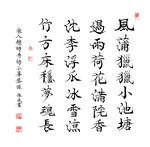 風蒲獵獵小池塘
過雨荷花滿院香
沈李浮瓜冰雪涼
竹方床穩夢魂長